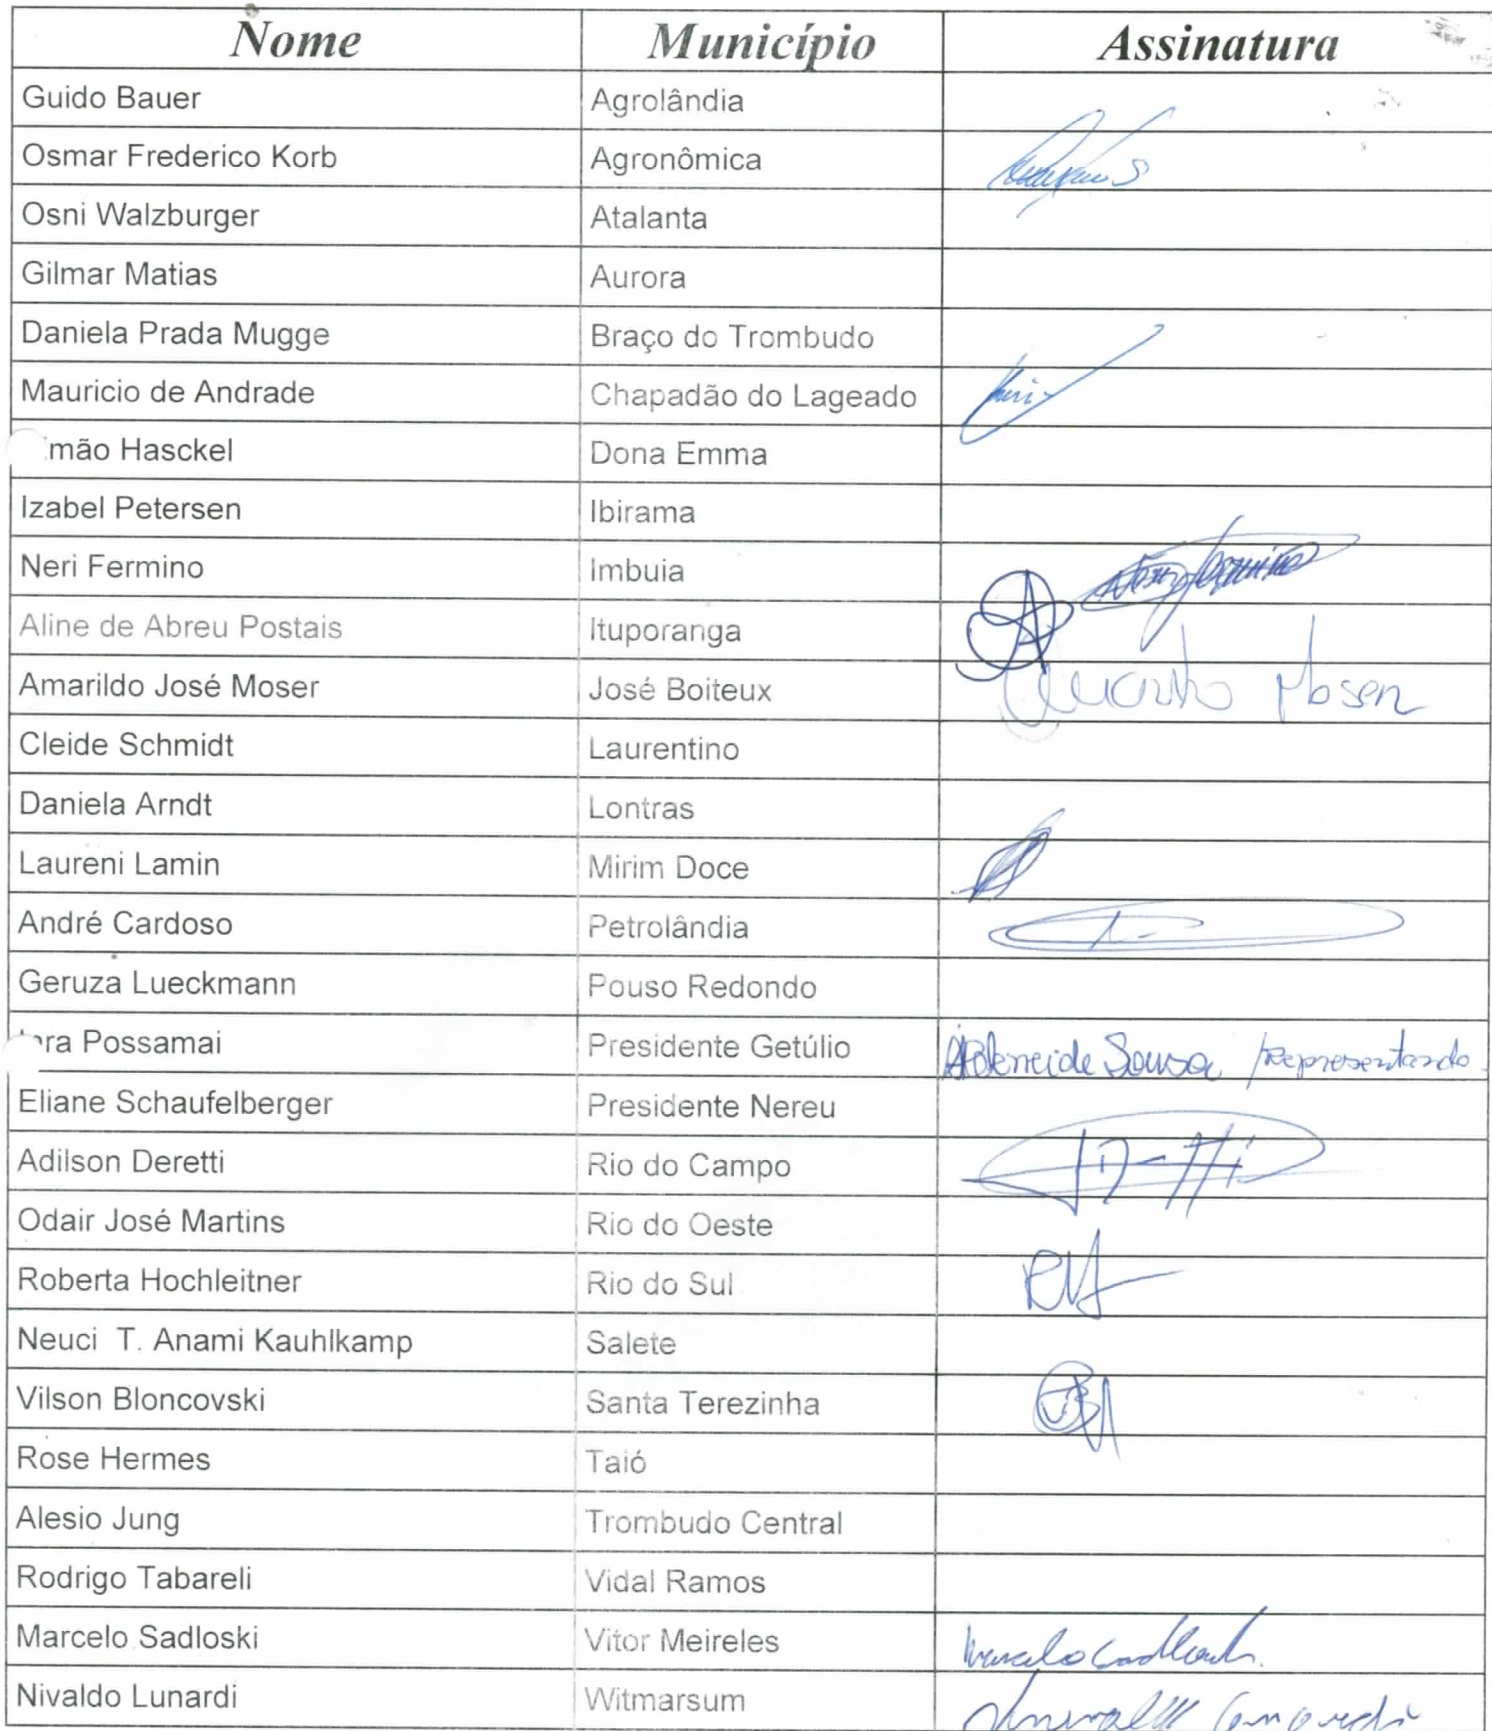 Nome Município Assinatura
Guido Bauer Agrolândia
Osmar Frederico Korb Agronômica
Osni Walzburger Atalanta
Gilmar Matias Aurora
Daniela Prada Mugge Braço do Trombudo
Mauricio de Andrade Chapadão do Lageado
mão Hasckel Dona Emma
Izabel Petersen Ibirama
Neri Fermino Imbuia
Aline de Abreu Postais Ituporanga
Amarildo José Moser José Boiteux
Cleide Schmidt Laurentino
Daniela Arndt Lontras
Laureni Lamin Mirim Doce
André Cardoso Petrolândia
Geruza Lueckmann Pouso Redondo
ra Possamai Presidente Getúlio Sousa /Representando
Eliane Schaufelberger Presidente Nereu
Adilson Deretti Rio do Campo
Odair José Martins Rio do Oeste
Roberta Hochleitner Rio do Sul
Neuci T. Anami Kauhlkamp Salete
Vilson Bloncovski Santa Terezinha
Rose Hermes Taió
Alesio Jung Trombudo Central
Rodrigo Tabareli Vidal Ramos
Marcelo Sadloski Vitor Meireles
Nivaldo Lunardi Witmarsum